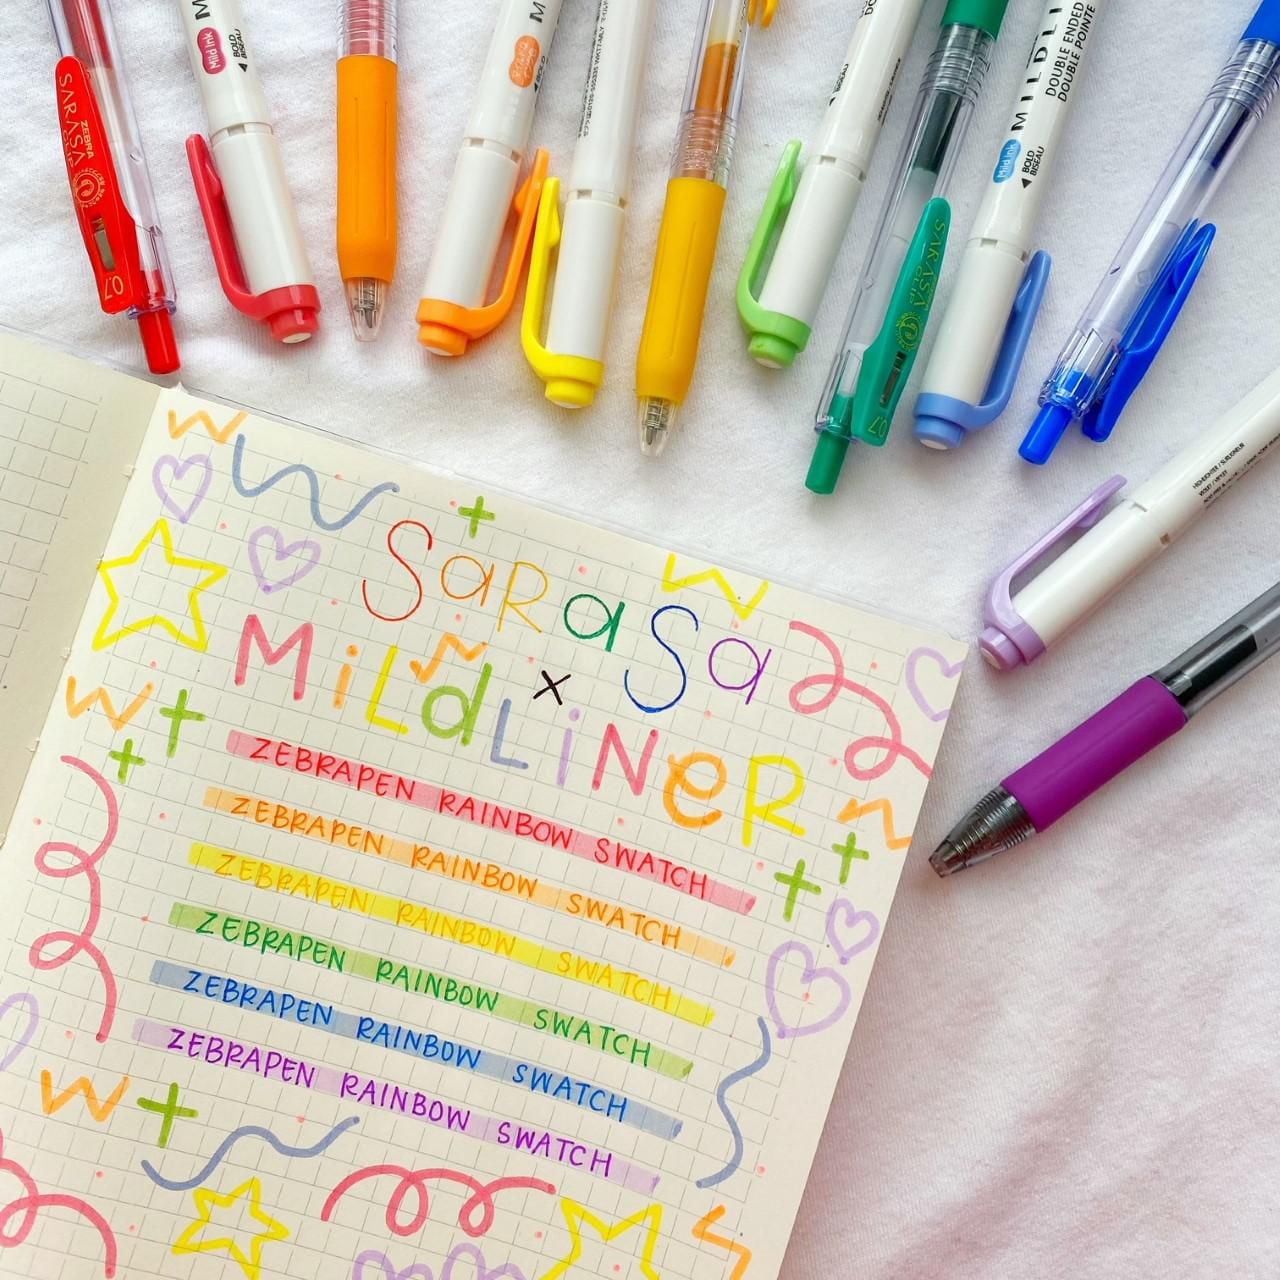 ZEBRA
SARASA
CLIP
0.7
Mild Ink
BOLD
BISEAU
BOLD
SARASA
CLIP
0.7
MILDLI
DOUBLE ENDED
DOUBLE POINTE
Mild Ink
BOLD
BISEAU
HIGHLIGHTER / SURLIGNEUR
SaRaSa
x
MiLdLiNeR
ZEBRAPEN RAINBOW SWATCH
ZEBRAPEN RAINBOW SWATCH
ZEBRAPEN RAINBOW SWATCH
ZEBRAPEN RAINBOW SWATCH
ZEBRAPEN RAINBOW SWATCH
ZEBRAPEN RAINBOW SWATCH